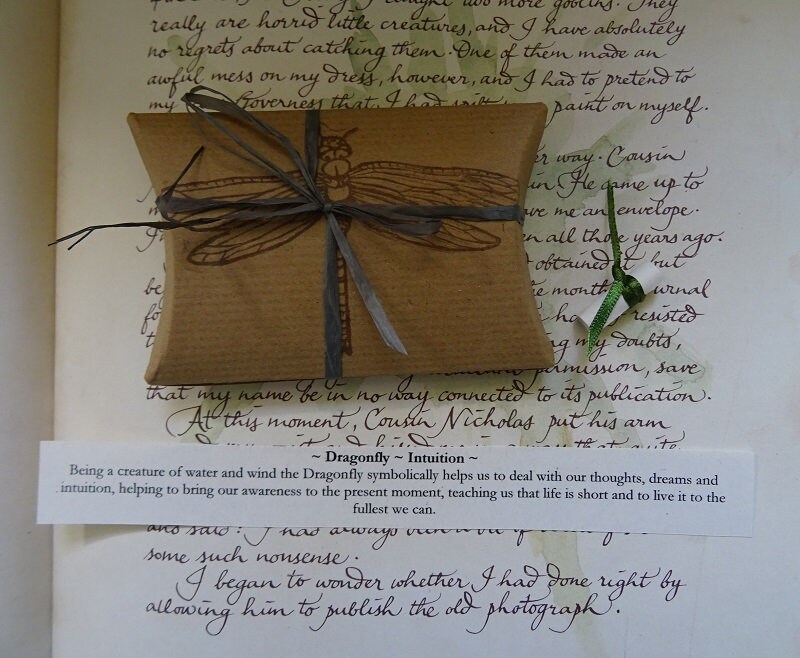 caught two more goblins. They
really are horrid little creatures, and I have absolutely
no regrets about catching them. One of them made an
awful mess on my dress, however, and I had to pretend to
my Governess that I had spilt paint on myself.
way. Cousin
He came up to
me an envelope.
all those years ago.
obtained it but
the month
resisted
my doubts,
permission, save
that my name be in no way connected to its publication.
At this moment, Cousin Nicholas put his arm
~ Dragonfly ~ Intuition ~
Being a creature of water and wind the Dragonfly symbolically helps us to deal with our thoughts, dreams and
intuition, helping to bring our awareness to the present moment, teaching us that life is short and to live it to the
fullest we can.
and said: I has always been a bit of
some such nonsense.
I began to wonder whether I had done right by
allowing him to publish the old photograph.